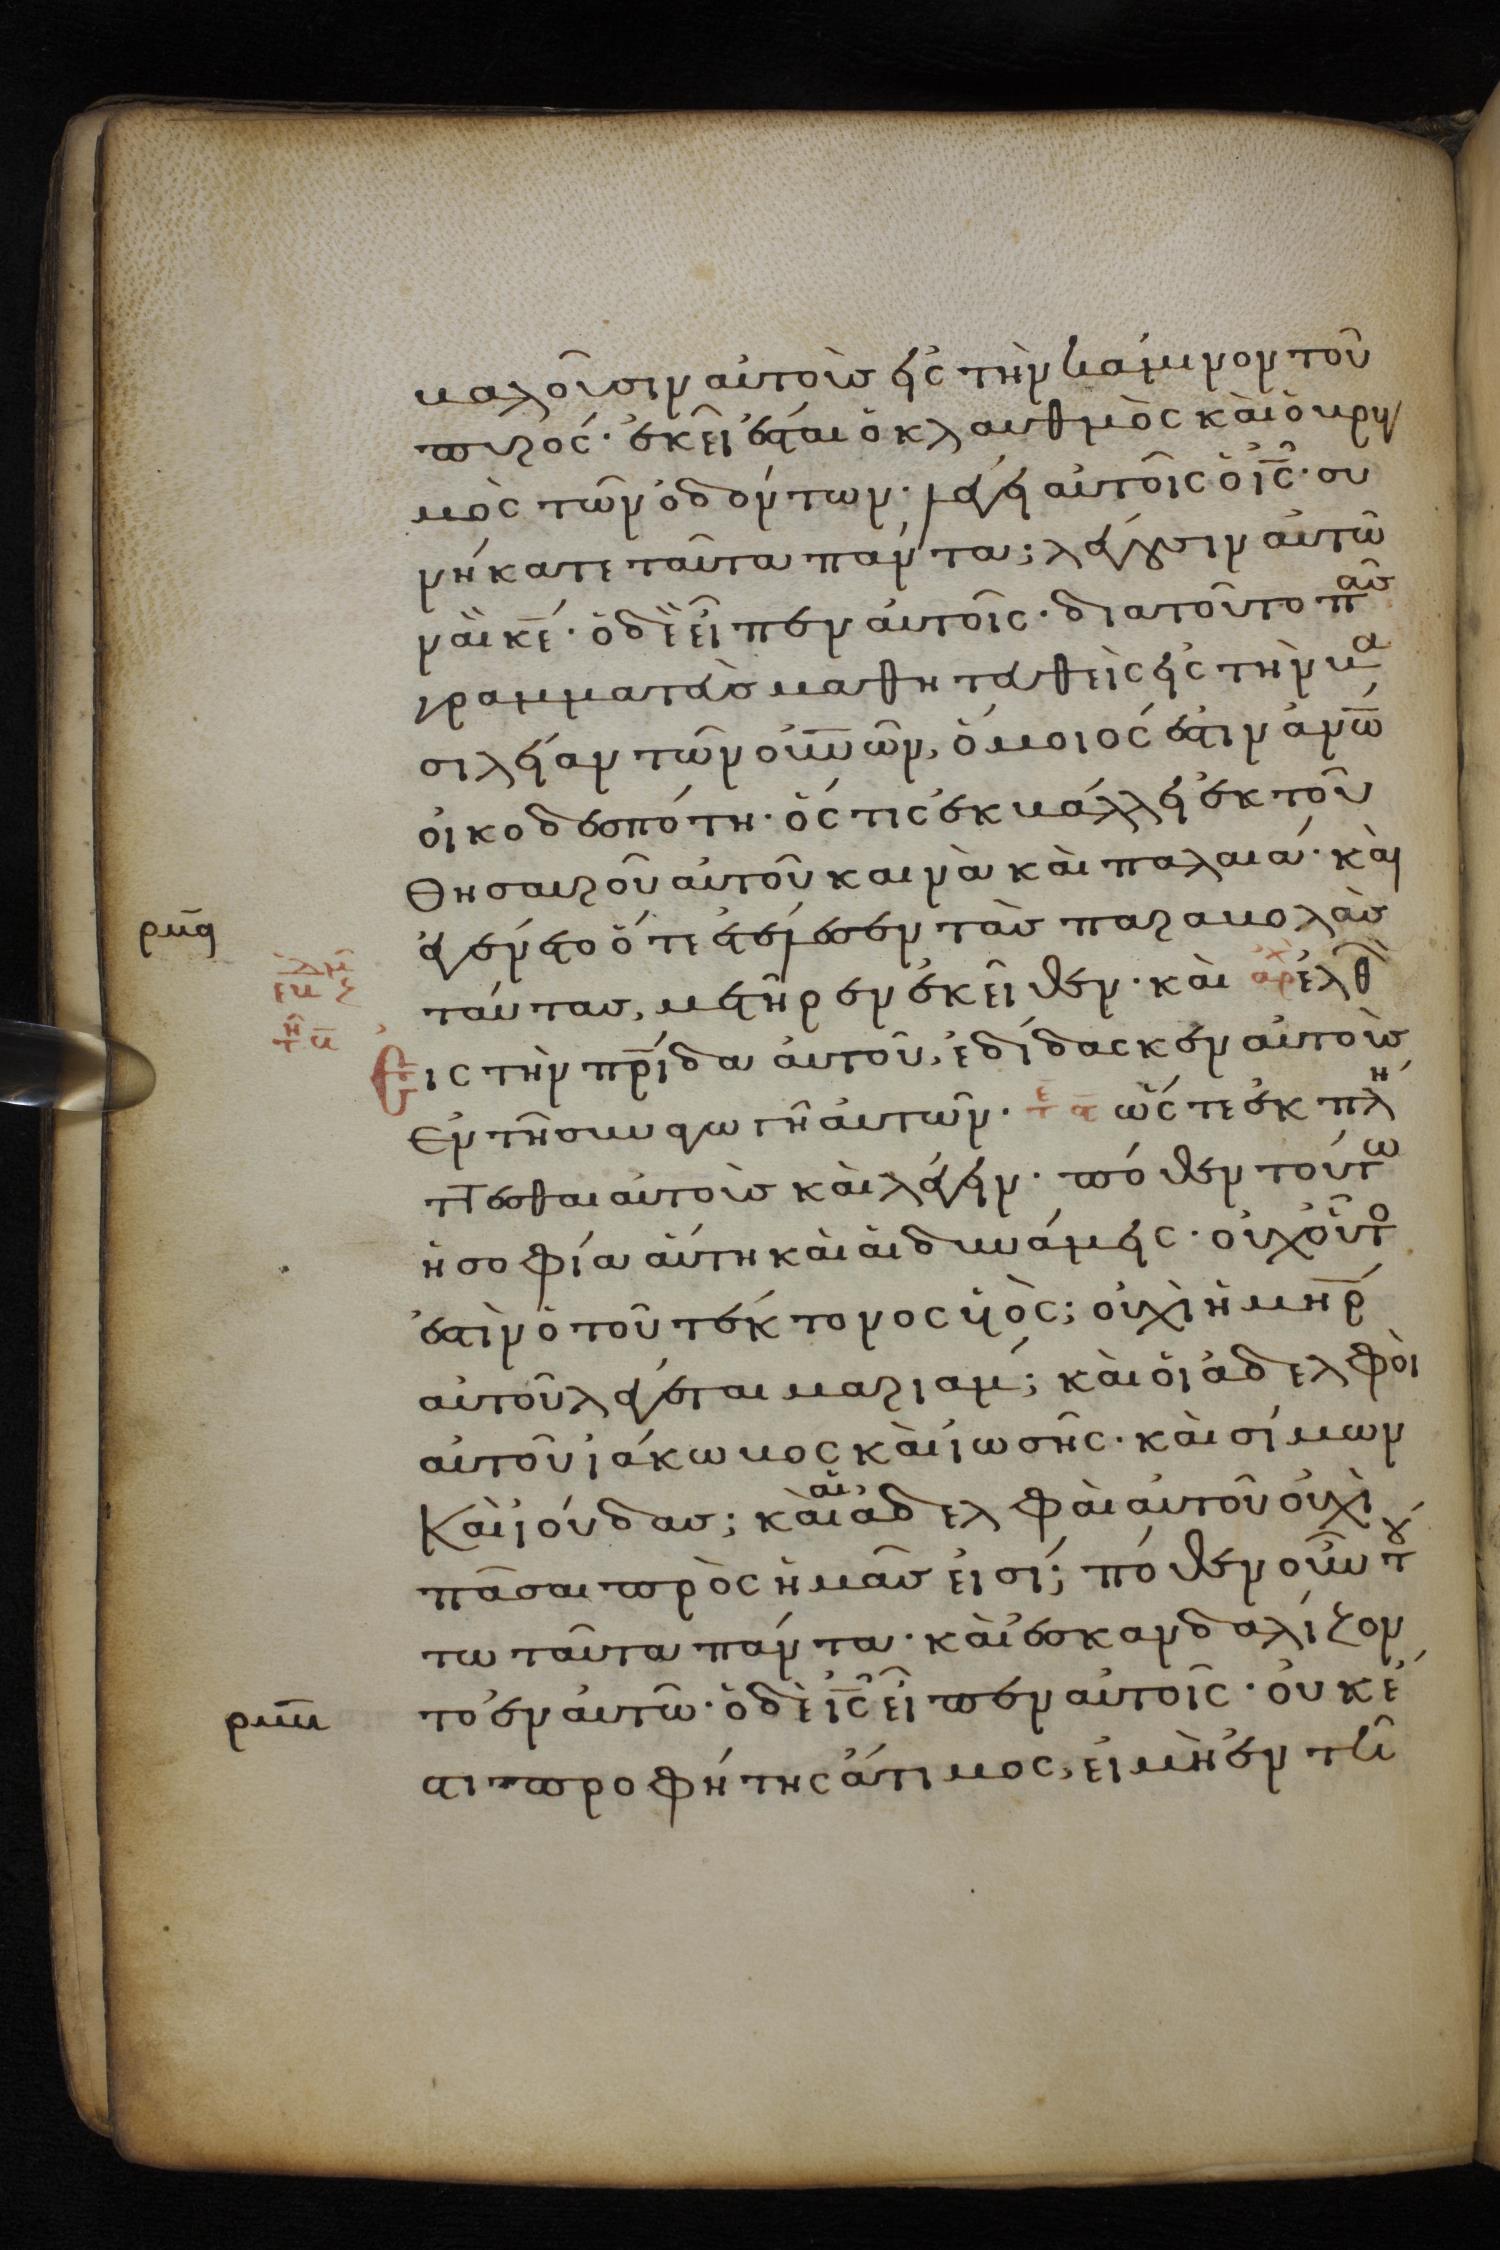 βαλοῦσιν αὐτοὺς εἰς τὴν κάμινον τοῦ
πυρός· ἐκεῖ ἔσται ὁ κλαυθμὸς καὶ ὁ βρυ
μὸς τῶν ὀδόντων· λέγει αὐτοῖς ὁ ις̅· συ
νήκατε ταῦτα πάντα; λέγουσιν αὐτῶ
ναὶ κε̅· ὁ δὲ εἶπεν αὐτοῖς· διατοῦτο πᾶς
γραμματεὺς μαθητευθεὶς εἰς τὴν βα
σιλείαν τῶν οὐν̅ῶν, ὅμοιός ἐστιν ἀνω̅
οἰκοδεσπότη· ὅστις ἐκβάλλει ἐκ τοῦ
θησαυροῦ αὐτοῦ καινὰ καὶ παλαιά· καὶ
ἐγένετο ὅτε ἐτέλεσεν τὰς παραβολὰς
ταύτας, μετῆρεν ἐκεῖθεν· καὶ ἀρχ ἐλθ
ρμα
Εἰς τὴν πρ̅ίδα αὐτοῦ, ἐδίδασκεν αὐτοὺς
ἐν τῆ συναγωγῆ αὐτῶν· ὥστε ἐκπλή
ττεσθαι αὐτοὺς καὶ λέγειν· πόθεν τούτω
ἡ σοφία αὕτη καὶ αἱ δυνάμεις· οὐχ οὗτο
ἐστὶν ὁ τοῦ τέκτονος υἱός; οὐχὶ ἡ μη̅ρ
αὐτοῦ λέγεται μαριάμ; καὶ οἱ ἀδελφοὶ
αὐτοῦ ἰάκωβος καὶ ἰωσῆς· καὶ σίμων
Καὶ ἰούδας; καὶ αἱ ἀδελφαὶ αὐτοῦ οὐχὶ
πᾶσαι πρὸς ἡμᾶς εἰσί; πόθεν οὖν τού
τω ταῦτα πάντα· καὶ ἐσκανδαλίζον
το ἐν αὐτῶ· ὁ δὲ ις̅ εἶπεν αὐτοῖς· οὐκ ἔ
ρμβ
στι προφήτης ἄτιμος, εἰ μὴ ἐν τῆ